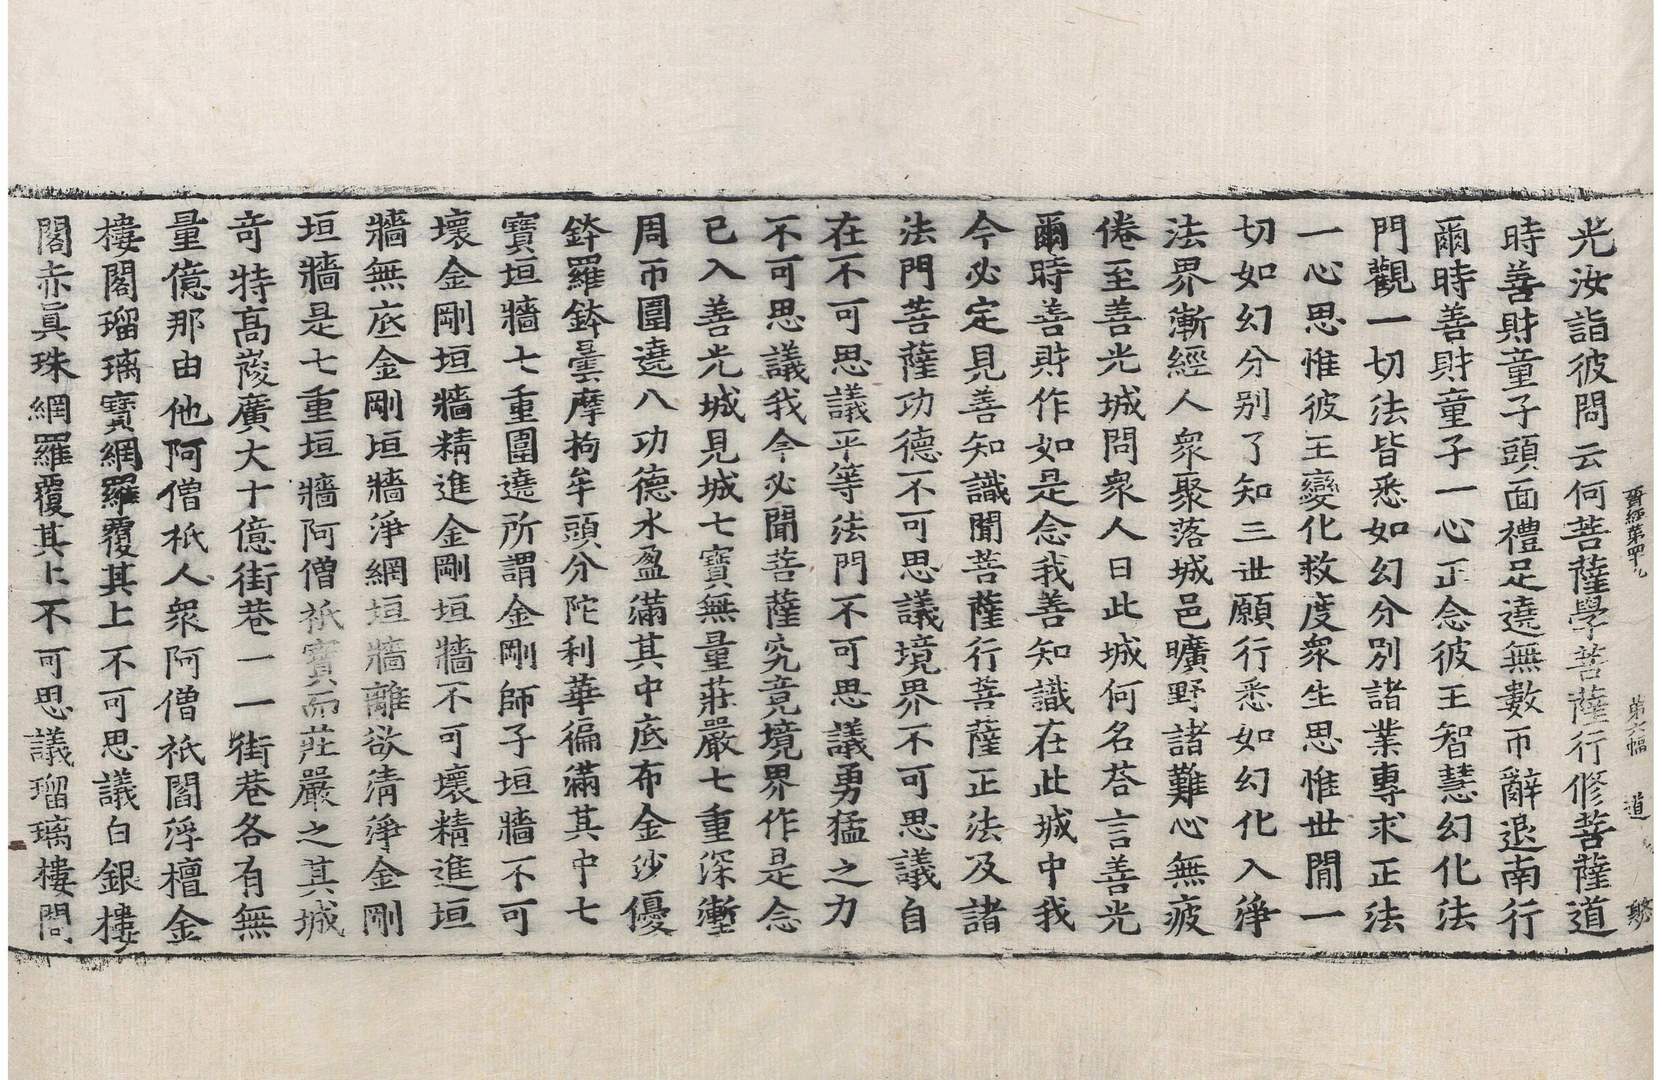 晋經第四九 第六幅 道
光汝詣彼問云何菩薩學菩薩行修菩薩道
時善財童子頭面禮足遶無數帀辭退南行
爾時善財童子一心正念彼王智慧幻化法
門觀一切法皆悉如幻分別諸業專求正法
一心思惟彼王變化救度衆生思惟世間一
切如幻分別了知三世願行悉如幻化入淨
法界漸經人衆聚落城邑曠野諸難心無疲
倦至善光城問衆人曰此城何名荅言善光
爾時善財作如是念我善知識在此城中我
今必定見善知識聞菩薩行菩薩正法及諸
法門菩薩功德不可思議境界不可思議自
在不可思議平等法門不可思議勇猛之力
不可思議我今必聞菩薩究竟境界作是念
已入善光城見城七寶無量莊嚴七重深壍
周帀圍遶八功德水盈滿其中底布金沙優
鉢羅鉢曇摩拘牟頭分陀利華徧滿其中七
寶垣牆七重圍遶所謂金剛師子垣牆不可
壞金剛垣牆精進金剛垣牆不可壞精進垣
牆無底金剛垣牆淨網垣牆離欲清淨金剛
垣牆是七重垣牆阿僧祇寶而莊嚴之其城
竒特高峻廣大十億街巷一一街巷各有無
量億那由他阿僧祇人衆阿僧祇閻浮檀金
樓閣瑠璃寶網羅覆其上不可思議白銀樓
閣赤眞珠網羅覆其上不可思議瑠璃樓閣